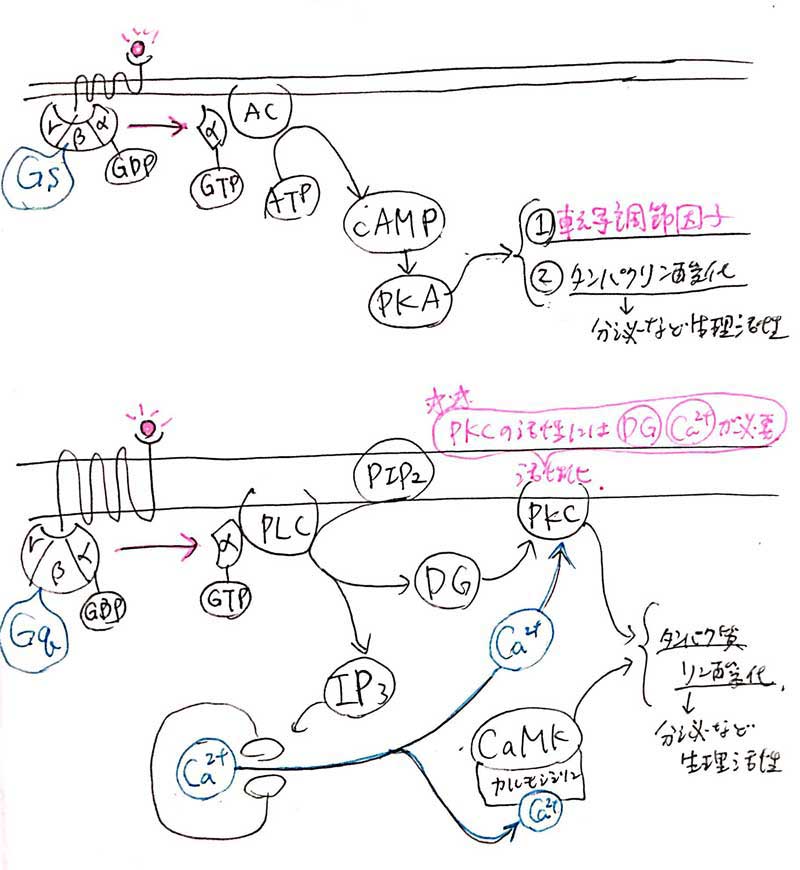 AC
γ
β
α
α
GDP
Gs
GTP
ATP
cAMP
PKA
① 転写調節因子
② タンパクリン酸化
↓
分泌など生理活性
PKCの活性には DG Ca²⁺ が必要
活性化.
PIP2
PLC
PKC
γ
β
α
α
GDP
GTP
Gq
DG
Ca²⁺
IP3
タンパク質
リン酸化.
↓
分泌など
生理活性
Ca²⁺
CaMK
カルモジュリン
Ca²⁺